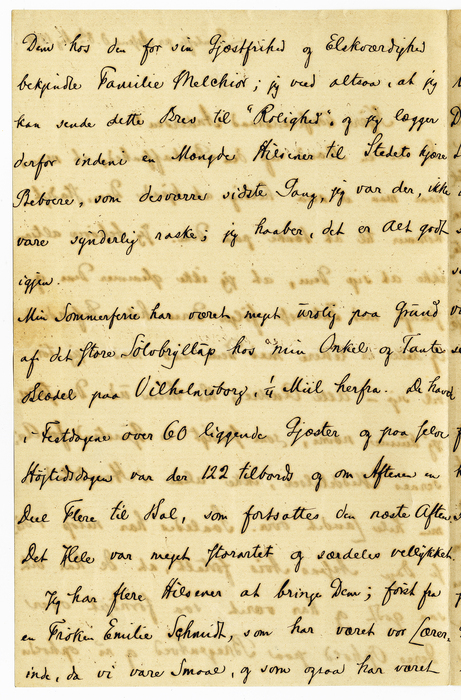 Dem hos den for sin Gjæstfrihed og Elskværdighed
bekjendte Familie Melchior; jeg veed altsaa, at jeg
kan sende dette Brev til "Rolighed", og jeg lægger
derfor indeni en Mængde Hilsener til Stedets kjære
Beboere, som desværre sidste Gang, jeg var der, ikke
vare synderlig raske; jeg haaber, det er Alt godt
igjen.
Min Sommerferie har været meget urolig paa Grund
af det store Sølvbryllup hos min Onkel og Tante
Bladel paa Vilhelmsborg, 1/4 Miil herfra. De havde
i Festdagene over 60 liggende Gjæster og paa selve
Høitidsdagen var der 122 tilbords og om Aftenen en
Deel Flere til Bal, som fortsattes den næste Aften.
Det Hele var meget storartet og særdeles vellykket.
Jeg har flere Hilsener at bringe Dem; først fra
en Frøken Emilie Schmidt, som har været vor Lærer-
inde, da vi vare Smaae, og som ogsaa har været